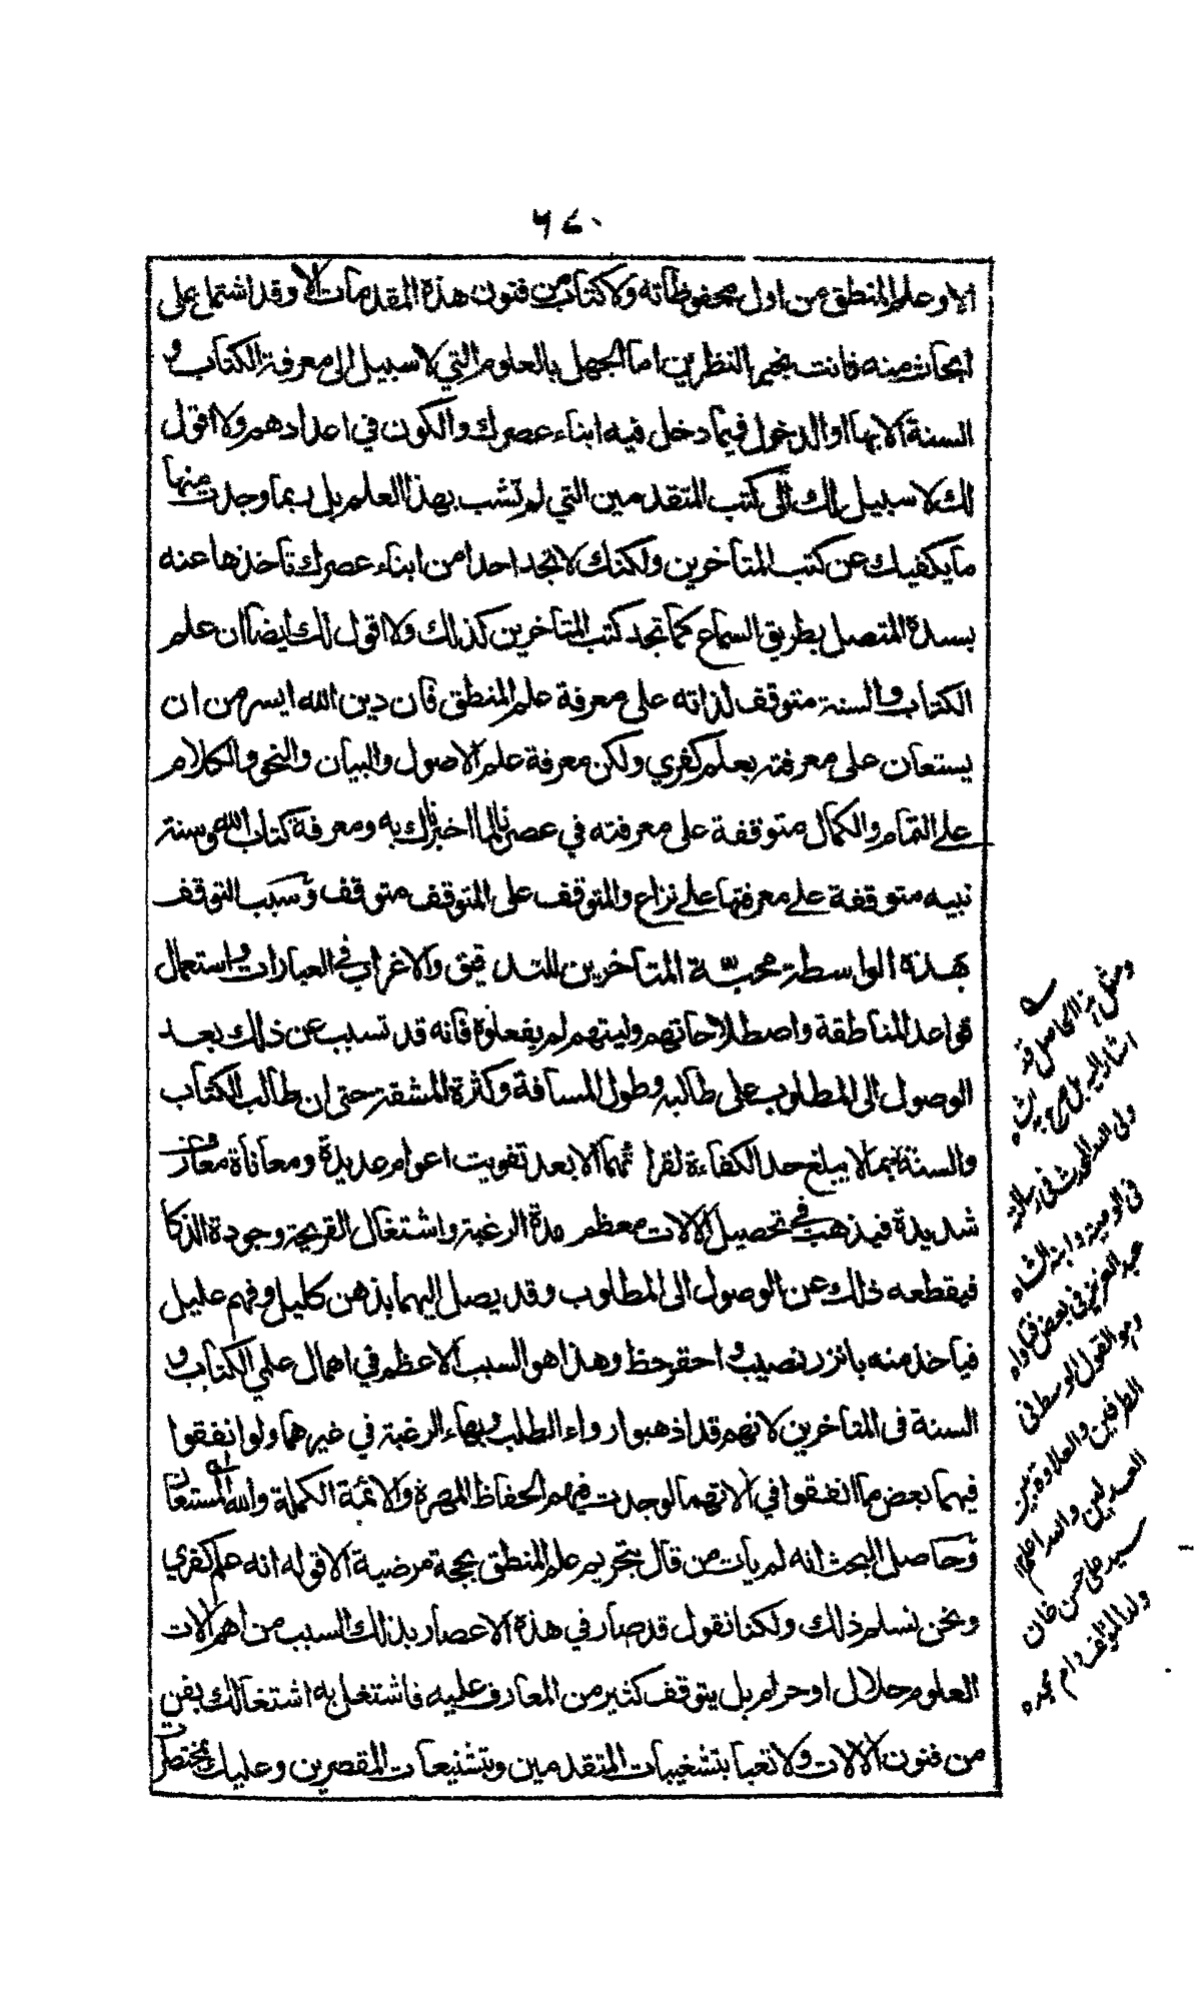 ٦٤٠
الا وعلم المنطق من اول محفوظاته ولا كتاب من فنون هذه المقدمات الا وقد اشتمل على
ابحاث منه فانت بخير النظرين اما الجهل بالعلوم التي لا سبيل الى معرفة الكتاب و
السنة الا بها او الدخول فيما دخل فيه ابناء عصرك والكون في اعدادهم ولا اقول
لك لا سبيل لك الى كتب المتقدمين التي لم تشب بهذا العلم بل ربما وجدت منها
ما يكفيك عن كتب المتاخرين ولكنك لا تجد احدا من ابناء عصرك تاخذها عنه
بسنده المتصل بطريق السماع كما تجد كتب المتاخرين كذلك ولا اقول لك ايضا ان علم
الكتاب والسنة متوقف لذاته على معرفة علم المنطق فان دين الله ايسر من ان
يستعان على معرفته بعلم كفري ولكن معرفة علم الاصول والبيان والنحو والكلام
على التمام والكمال متوقفة على معرفته في عصرنا لما اخبرناك به ومعرفة كتاب الله وسنة
نبيه متوقفة على معرفتها على نزاع والمتوقف على المتوقف متوقف وسبب التوقف
بهذه الواسطة محبّة المتاخرين للتدقيق والاغراب في العبارات واستعمال
قواعد المناطقة واصطلاحاتهم وليتهم لم يفعلوه فانه قد تسبب عن ذلك بعد
الوصول الى المطلوب على طالبه وطول المسافة وكثرة المشقة حتى ان طالب الكتاب
والسنة ربما لا يبلغ حد الكفاءة لقراءتهما الا بعد تفويت اعوام عديدة ومعاناة
شديدة فيذهب في تحصيل الالات معظم مدة الرغبة واشتغال القريحة وجودة الذكا
فيقطعه ذلك عن الوصول الى المطلوب وقد يصل اليهما بذهن كليل وفهم عليل
فياخذ منه بانزر نصيب واحقر حظ وهذا هو السبب الاعظم في اهمال علمي الكتاب و
السنة فى المتاخرين لانهم قد اذهبوا رواء الطلب وبهاء الرغبة في غيرهما ولو انفقوا
فيهما بعض ما انفقوا في الاتهما لوجدت فيهم الحفاظ المهرة والائمة الكملة والله المستعان
وحاصل البحث انه لم يات من قال بتحريم علم المنطق بحجة مرضية الا قوله انه علم كفري
ونحن نسلم ذلك ولكنا نقول قد صار في هذه الاعصار بذلك السبب من اهم الات
العلوم حلال او حرام بل يتوقف كثير من المعارف عليه فاشتغل به اشتغالك بفن
من فنون الالات ولا تعبا بتشغيبات المتقدمين وبتشنيعات المقصرين وعليك بمختصرات
ومثل هذا الحاصل قد
اشار اليه بل صرح به الشاه
ولي الله المحدث في رسالته
فى الوصية وابنه الشاه
عبد العزيز في بعض فتاواه
وهو القول الوسط في
الطرفين والعلاوة بين
العدلين والله اعلم
سيد علي حسن خان
ولد المؤلف دام مجده